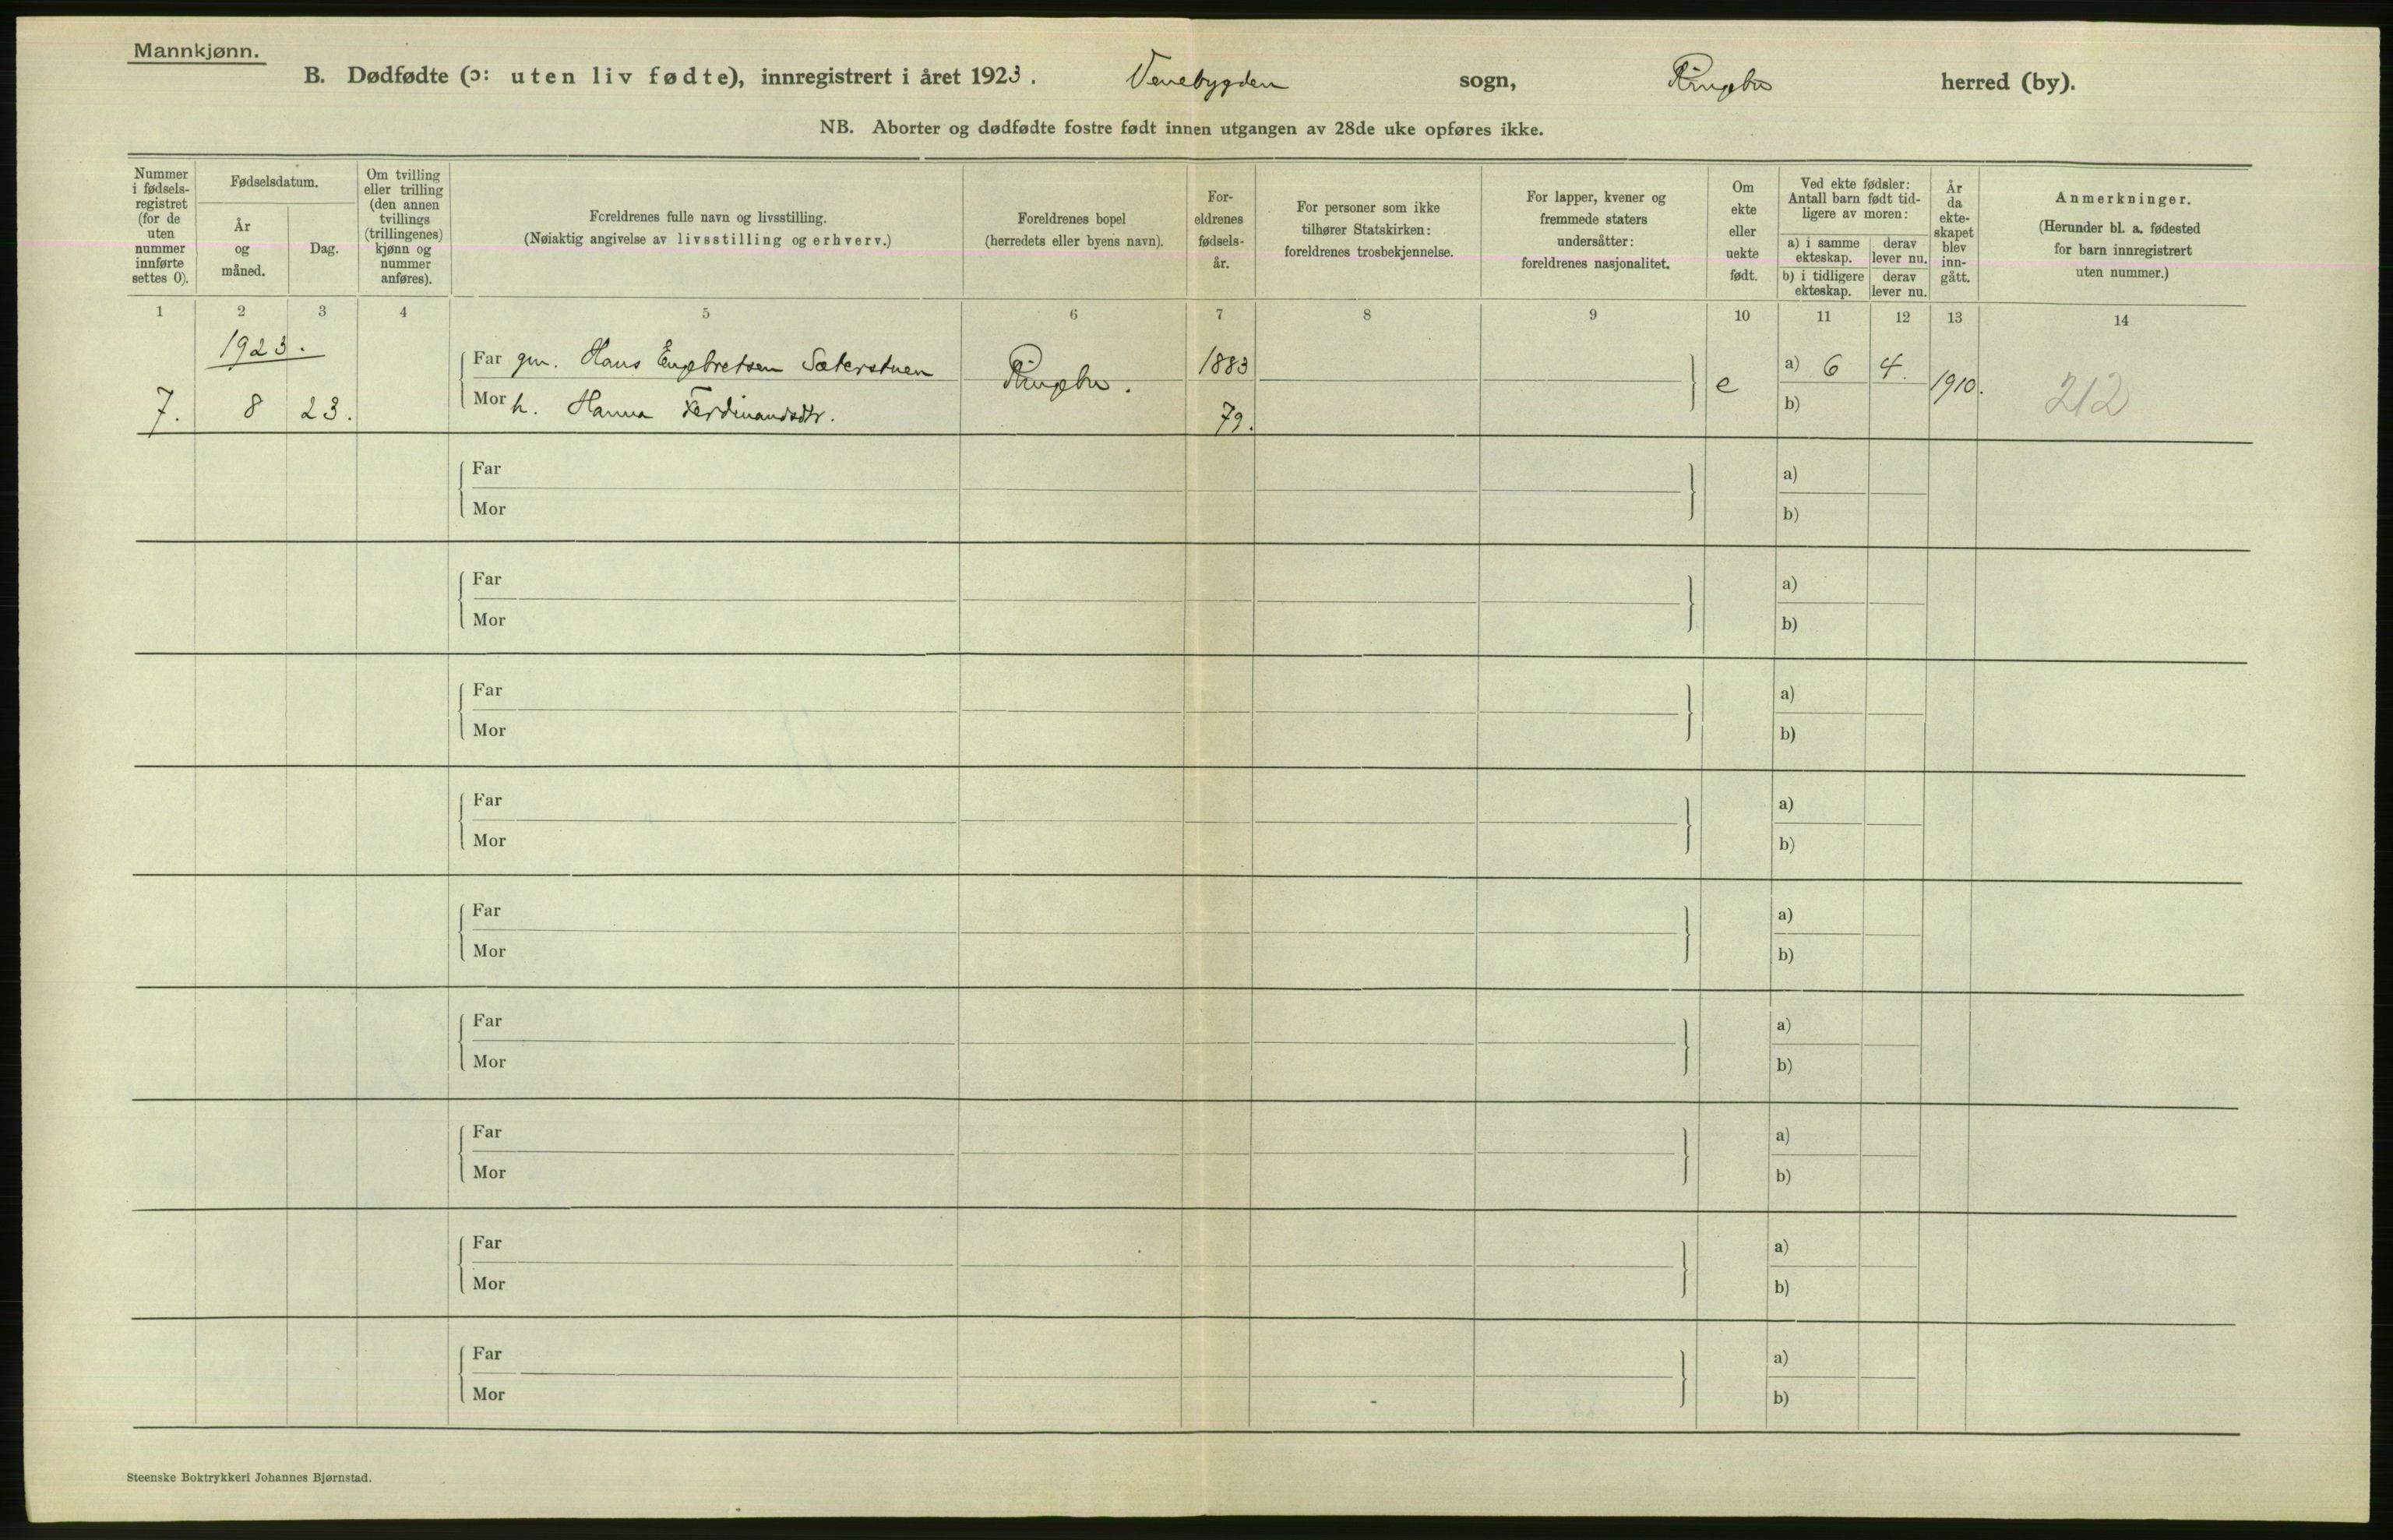 Mannkjønn.
B. Dødfødte (ɔ: uten liv fødte), innregistrert i året 1923. Venebygden sogn, Ringebu herred (by).
NB. Aborter og dødfødte fostre født innen utgangen av 28de uke opføres ikke.
Nummer i fødsels- registret (for de uten nummer innførte settes 0).
Fødselsdatum.
År og måned.
Dag.
Om tvilling eller trilling (den annen tvillings (trillingenes) kjønn og nummer anføres).
Foreldrenes fulle navn og livsstilling.
(Nøiaktig angivelse av livsstilling og erhverv.)
Foreldrenes bopel
(herredets eller byens navn).
For- eldrenes fødsels- år.
For personer som ikke tilhører Statskirken: foreldrenes trosbekjennelse.
For lapper, kvener og fremmede staters undersåtter: foreldrenes nasjonalitet.
Om ekte eller uekte født.
Ved ekte fødsler: Antall barn født tid- ligere av moren:
a) i samme ekteskap.
derav lever nu.
b) i tidligere ekteskap.
derav lever nu.
År da ekte- skapet blev inn- gått.
Anmerkninger.
(Herunder bl. a. fødested for barn innregistrert uten nummer.)
1 2 3 4 5 6 7 8 9 10 11 12 13 14
1923.
Far gm. Hans Engebretsen Sæterstuen 1883 a) 6 4.
7. 8 23. Mor h. Hanna Ferdinandsdtr. Ringebu. 79. e b) 1910. 212
Far a)
Mor b)
Far a)
Mor b)
Far a)
Mor b)
Far a)
Mor b)
Far a)
Mor b)
Far a)
Mor b)
Far a)
Mor b)
Far a)
Mor b)
Far a)
Mor b)
Steenske Boktrykkeri Johannes Bjørnstad.